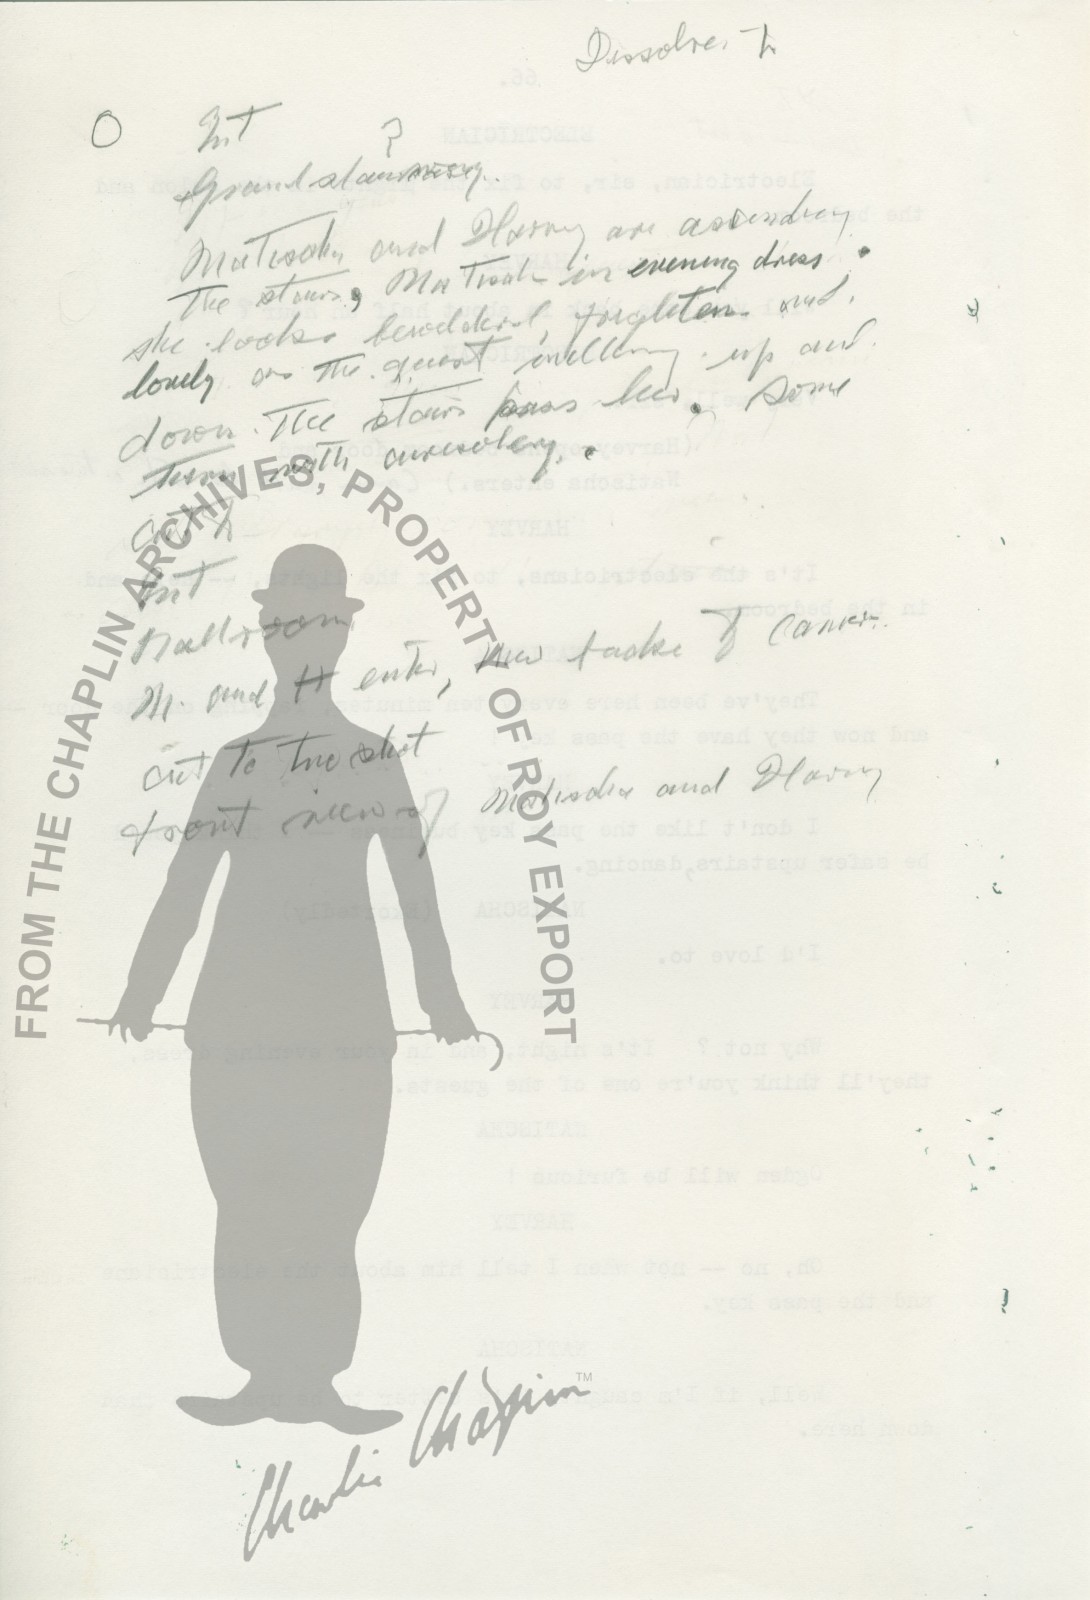 Dissolve to
Int
?
Grand stairway.
Natischa and Harvey are ascending
The stairs, Natischa in evening dress.
she looks bewildered, frighten and.
lonely as the guest milling up and
down The stairs pass her, some
turn with curiosity.
cut to
Int
Ballroom
N. and H enter, backs to camera.
cut to two shot
front view of Natischa and Harvey
FROM THE CHAPLIN ARCHIVES, PROPERTY OF ROY EXPORT
Charlie Chaplin TM
66.
ELECTRICIAN
Electrician, sir, to fix the and
the
HARVEY
about half an hour ?
(Harvey
Natischa enters.)
HARVEY
It's the electricians, to fix the lights, -- and
in the bedroom.
They've been here every ten minutes,
and now they have the pass key !
I don't like the pass key business --
be safer upstairs, dancing.
NATISCHA (Excitedly)
I'd love to.
HARVEY
Why not ? It's night, and in your evening dress,
they'll think you're one of the guests.
NATISCHA
Ogden will be furious !
HARVEY
Oh, no -- not when I tell him about the electricians
and the pass key.
NATISCHA
Well, if I'm caught, than
down here.